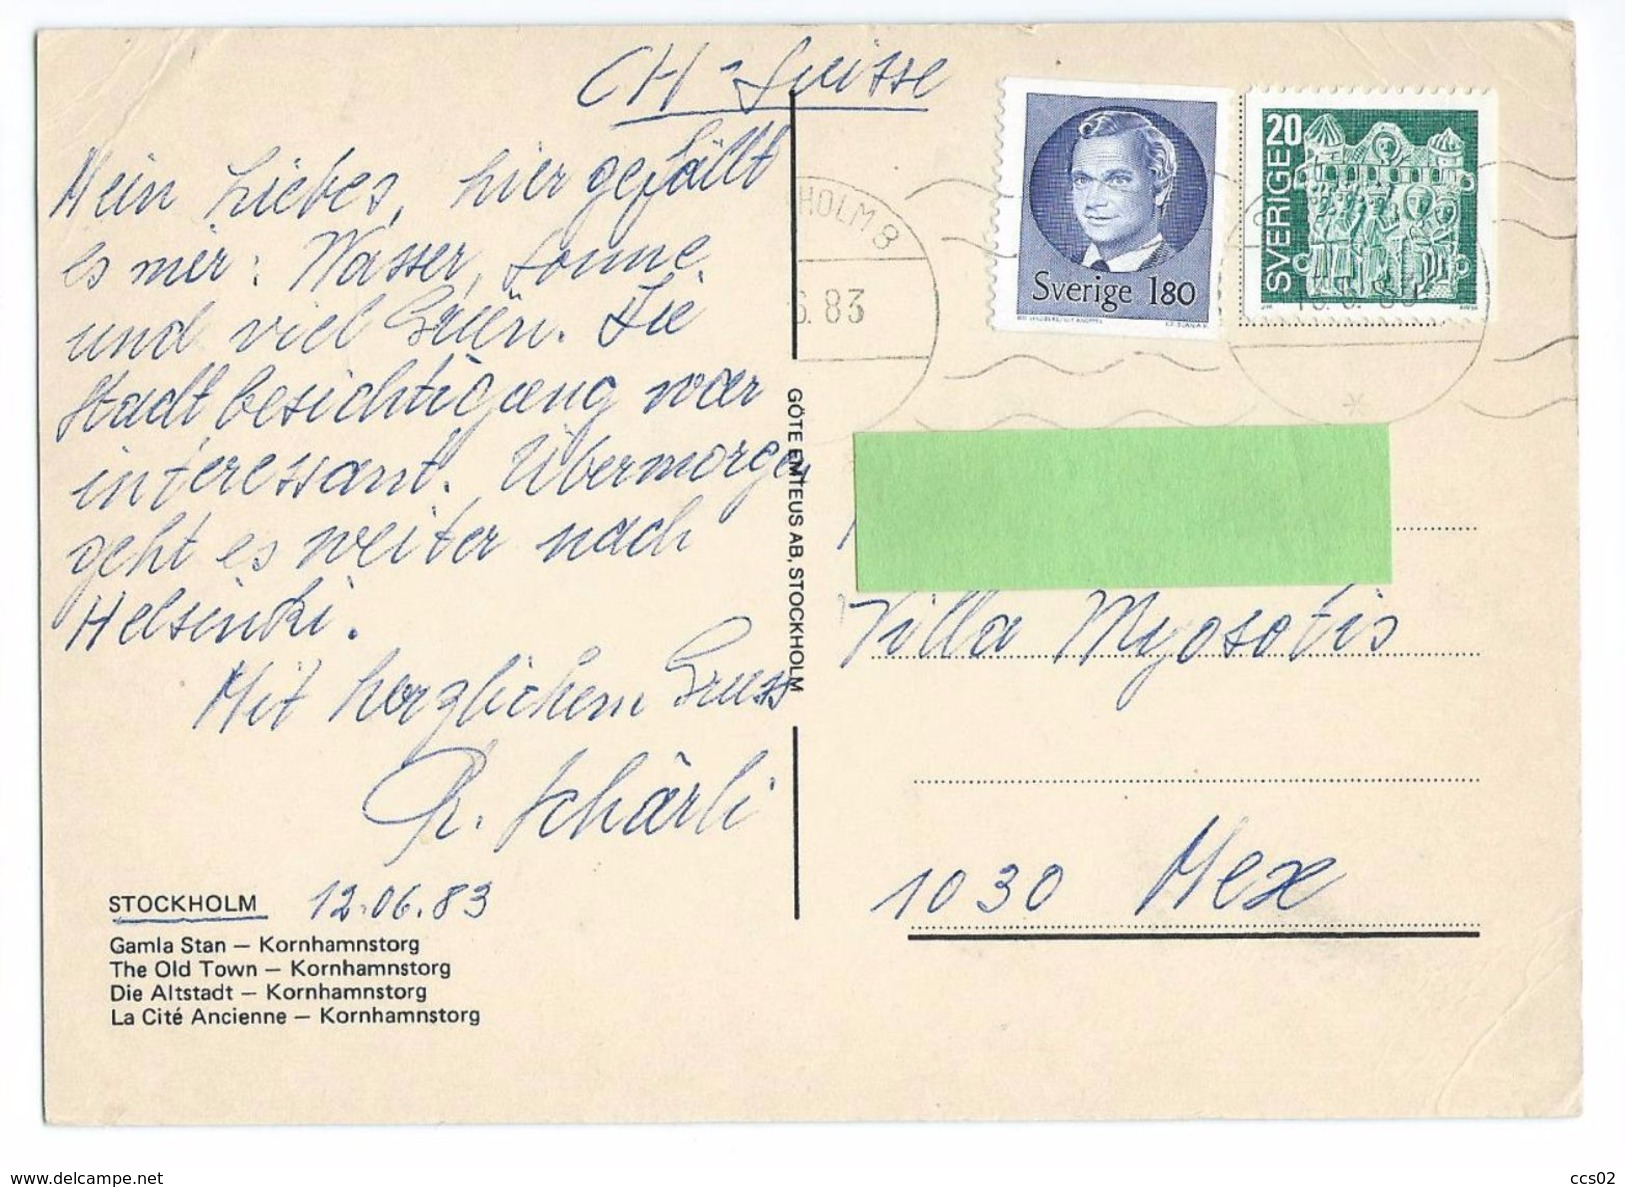 CH-Suisse
Mein Liebes, hier gefällt
es mir: Wasser, Sonne
und viel Grün. Die
Stadtbesichtigung war
interessant. Übermorgen
geht es weiter nach
Helsinki.
Mit herzlichem Gruss
R. Schärli
STOCKHOLM 12.06.83
Gamla Stan – Kornhamnstorg
The Old Town – Kornhamnstorg
Die Altstadt – Kornhamnstorg
La Cité Ancienne – Kornhamnstorg
GÖTE EMTEUS AB, STOCKHOLM
HOLM 8
6.83
Sverige 180
20
SVERIGE
Villa Myosotis
1030 Mex
www.delcampe.net
ccs02